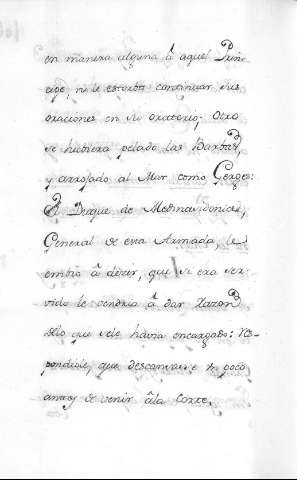 en manera alguna â aquel Prin-
cipe, ni le estorbò continuar sus
oraciones en su oratorio; Otro
se hubiera pelado las Barbas,
y arrojado al Mar como Gerges:
El Duque de Medinasidonia,
General de esa Armada, le
embió â dezir, que si era ser-
vido le vendria â dar Razon
dlo que sele havia encargado: Res-
pondiole, que descansase un poco
antes de venir âla Corte.